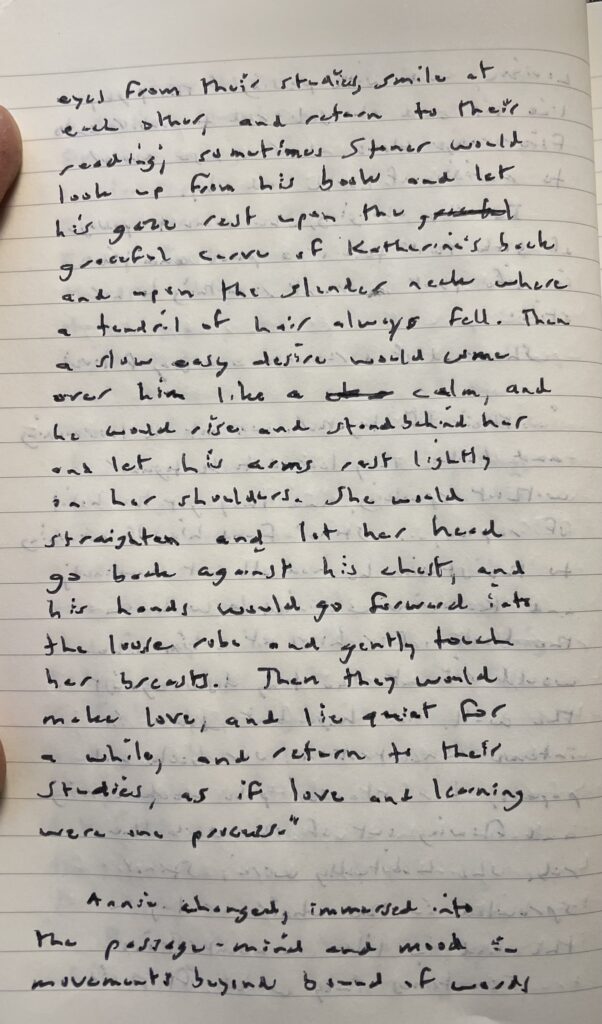 eyes from their studies, smile at
each other, and return to their
reading; sometimes Stoner would
look up from his book and let
his gaze rest upon the graceful
graceful curve of Katherine's back
and upon the slender neck where
a tendril of hair always fell. Then
a slow easy desire would come
over him like a calm, and
he would rise and stand behind her
and let his arms rest lightly
on her shoulders. She would
straighten and let her head
go back against his chest, and
his hands would go forward into
the loose robe and gently touch
her breasts. Then they would
make love, and lie quiet for
a while, and return to their
studies, as if love and learning
were one process."
Annie changed, immersed into
the passage - mind and mood in
movements beyond bound of words